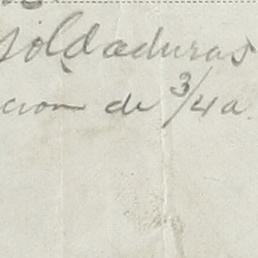 soldaduras
cion de 3/4 a